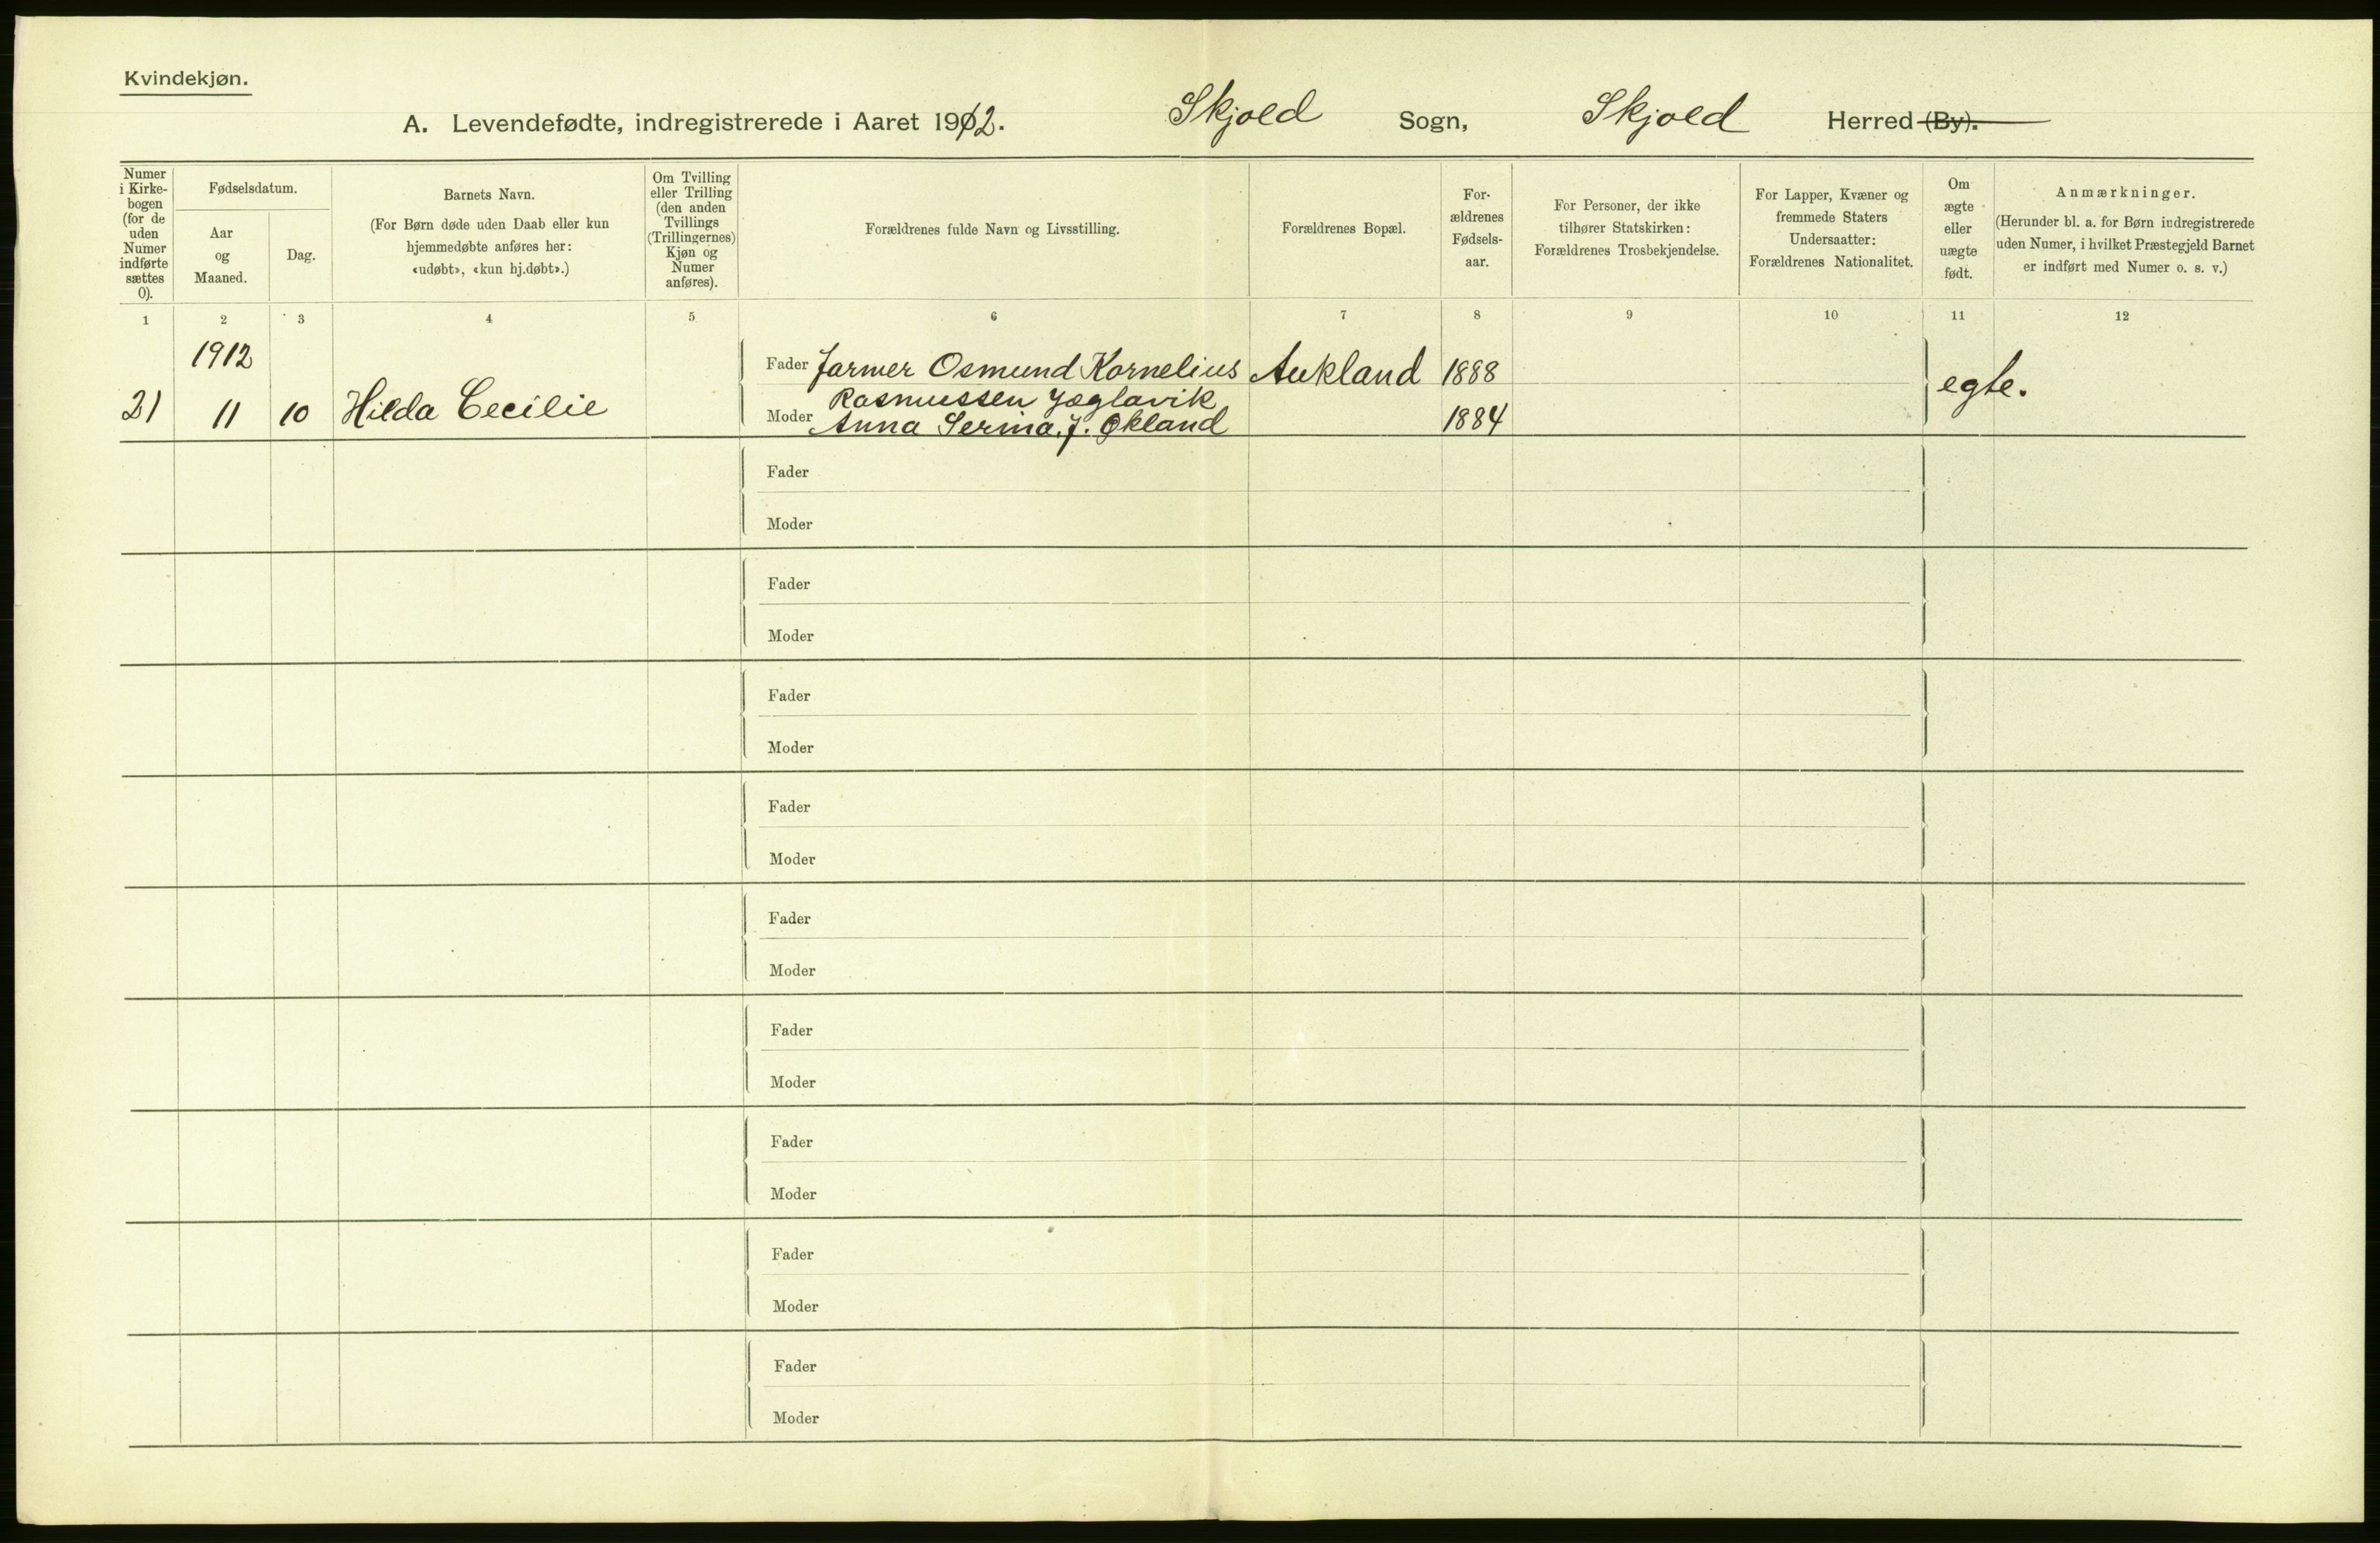 Kvindekjøn.
A. Levendefødte, indregistrerede i Aaret 1912. Skjold Sogn, Skjold Herred (By).
Numer i Kirkebogen (for de uden Numer indførte sættes 0).
Fødselsdatum.
Aar og Maaned.
Dag.
Barnets Navn.
(For Børn døde uden Daab eller kun
hjemmedøbte anføres her:
«udøbt», «kun hj.døbt».)
Om Tvilling
eller Trilling
(den anden
Tvillings
(Trillingernes)
Kjøn og
Numer
anføres).
Forældrenes fulde Navn og Livsstilling.
Forældrenes Bopæl.
For-
ældrenes
Fødsels-
aar.
For Personer, der ikke
tilhører Statskirken:
Forældrenes Trosbekjendelse.
For Lapper, Kvæner og
fremmede Staters
Undersaatter:
Forældrenes Nationalitet.
Om
ægte
eller
uægte
født.
Anmærkninger.
(Herunder bl. a. for Børn indregistrerede
uden Numer, i hvilket Præstegjeld Barnet
er indført med Numer o. s. v.)
1 2 3 4 5 6 7 8 9 10 11 12
1912
Fader Farmer Osmund Kornelius Aukland 1888 egte.
Rasmussen
21 11 10 Hilda Cecilie
Moder Anna Serina J. Økland 1884
Fader
Moder
Fader
Moder
Fader
Moder
Fader
Moder
Fader
Moder
Fader
Moder
Fader
Moder
Fader
Moder
Fader
Moder